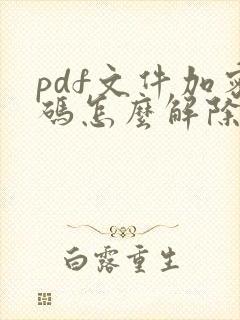 pdf文件加密
碼怎麼解除
白露重生